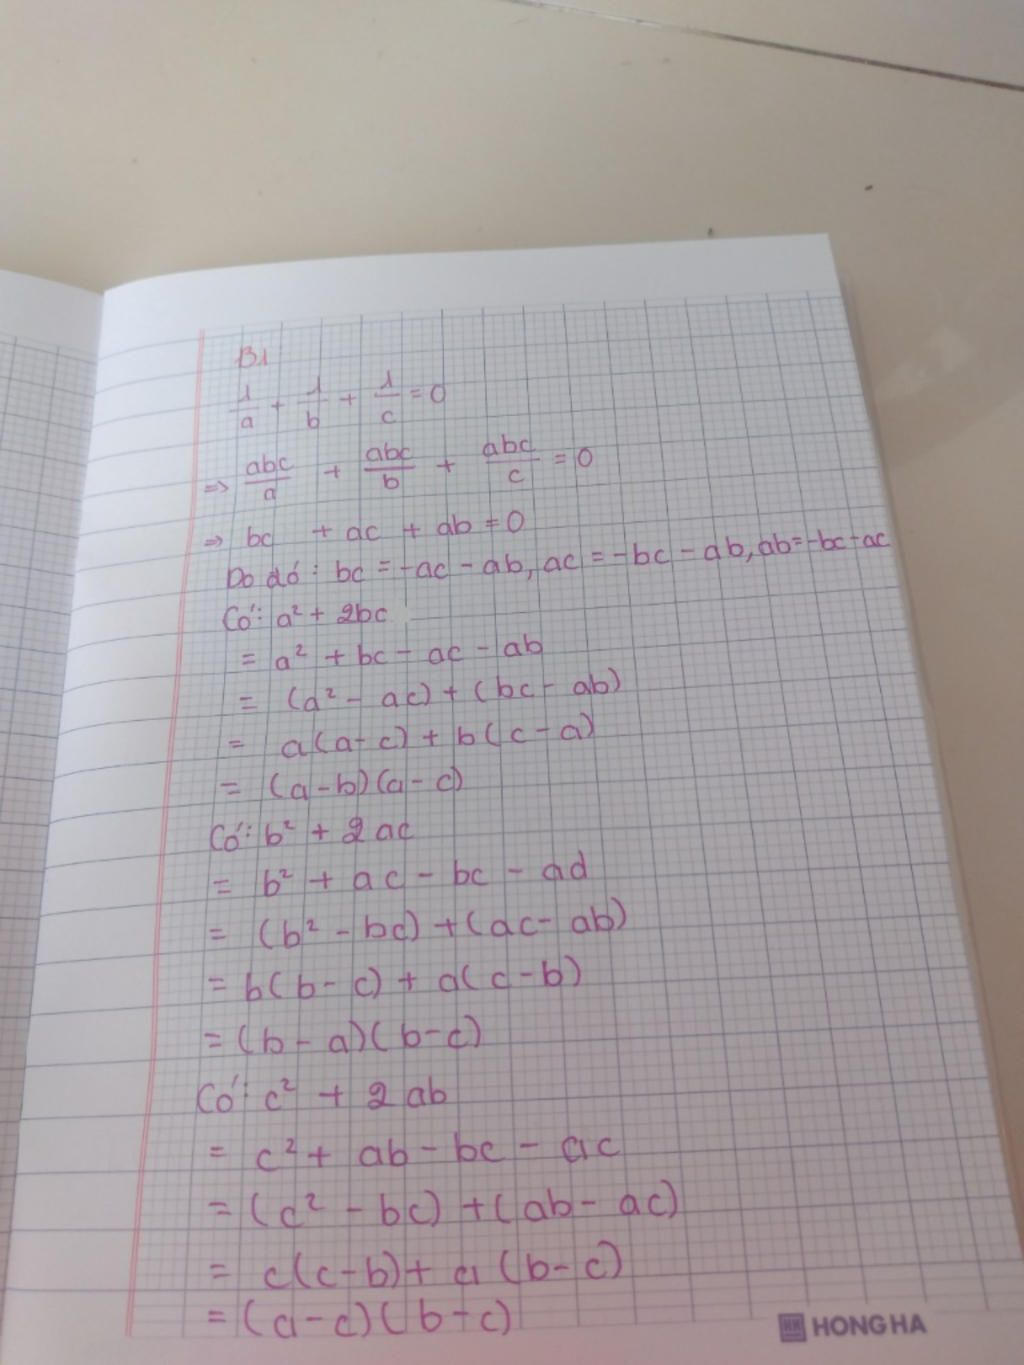 B1
1/a + 1/b + 1/c = 0
=> abc/a + abc/b + abc/c = 0
=> bc + ac + ab = 0
Do đó : bc = -ac - ab, ac = -bc - ab, ab = -bc - ac
Có: a² + 2bc
= a² + bc - ac - ab
= (a² - ac) + (bc - ab)
= a(a - c) + b(c - a)
= (a - b)(a - c)
Có: b² + 2ac
= b² + ac - bc - ad
= (b² - bc) + (ac - ab)
= b(b - c) + a(c - b)
= (b - a)(b - c)
Có: c² + 2ab
= c² + ab - bc - ac
= (c² - bc) + (ab - ac)
= c(c - b) + a(b - c)
= (a - c)(b - c)
HH HONG HA